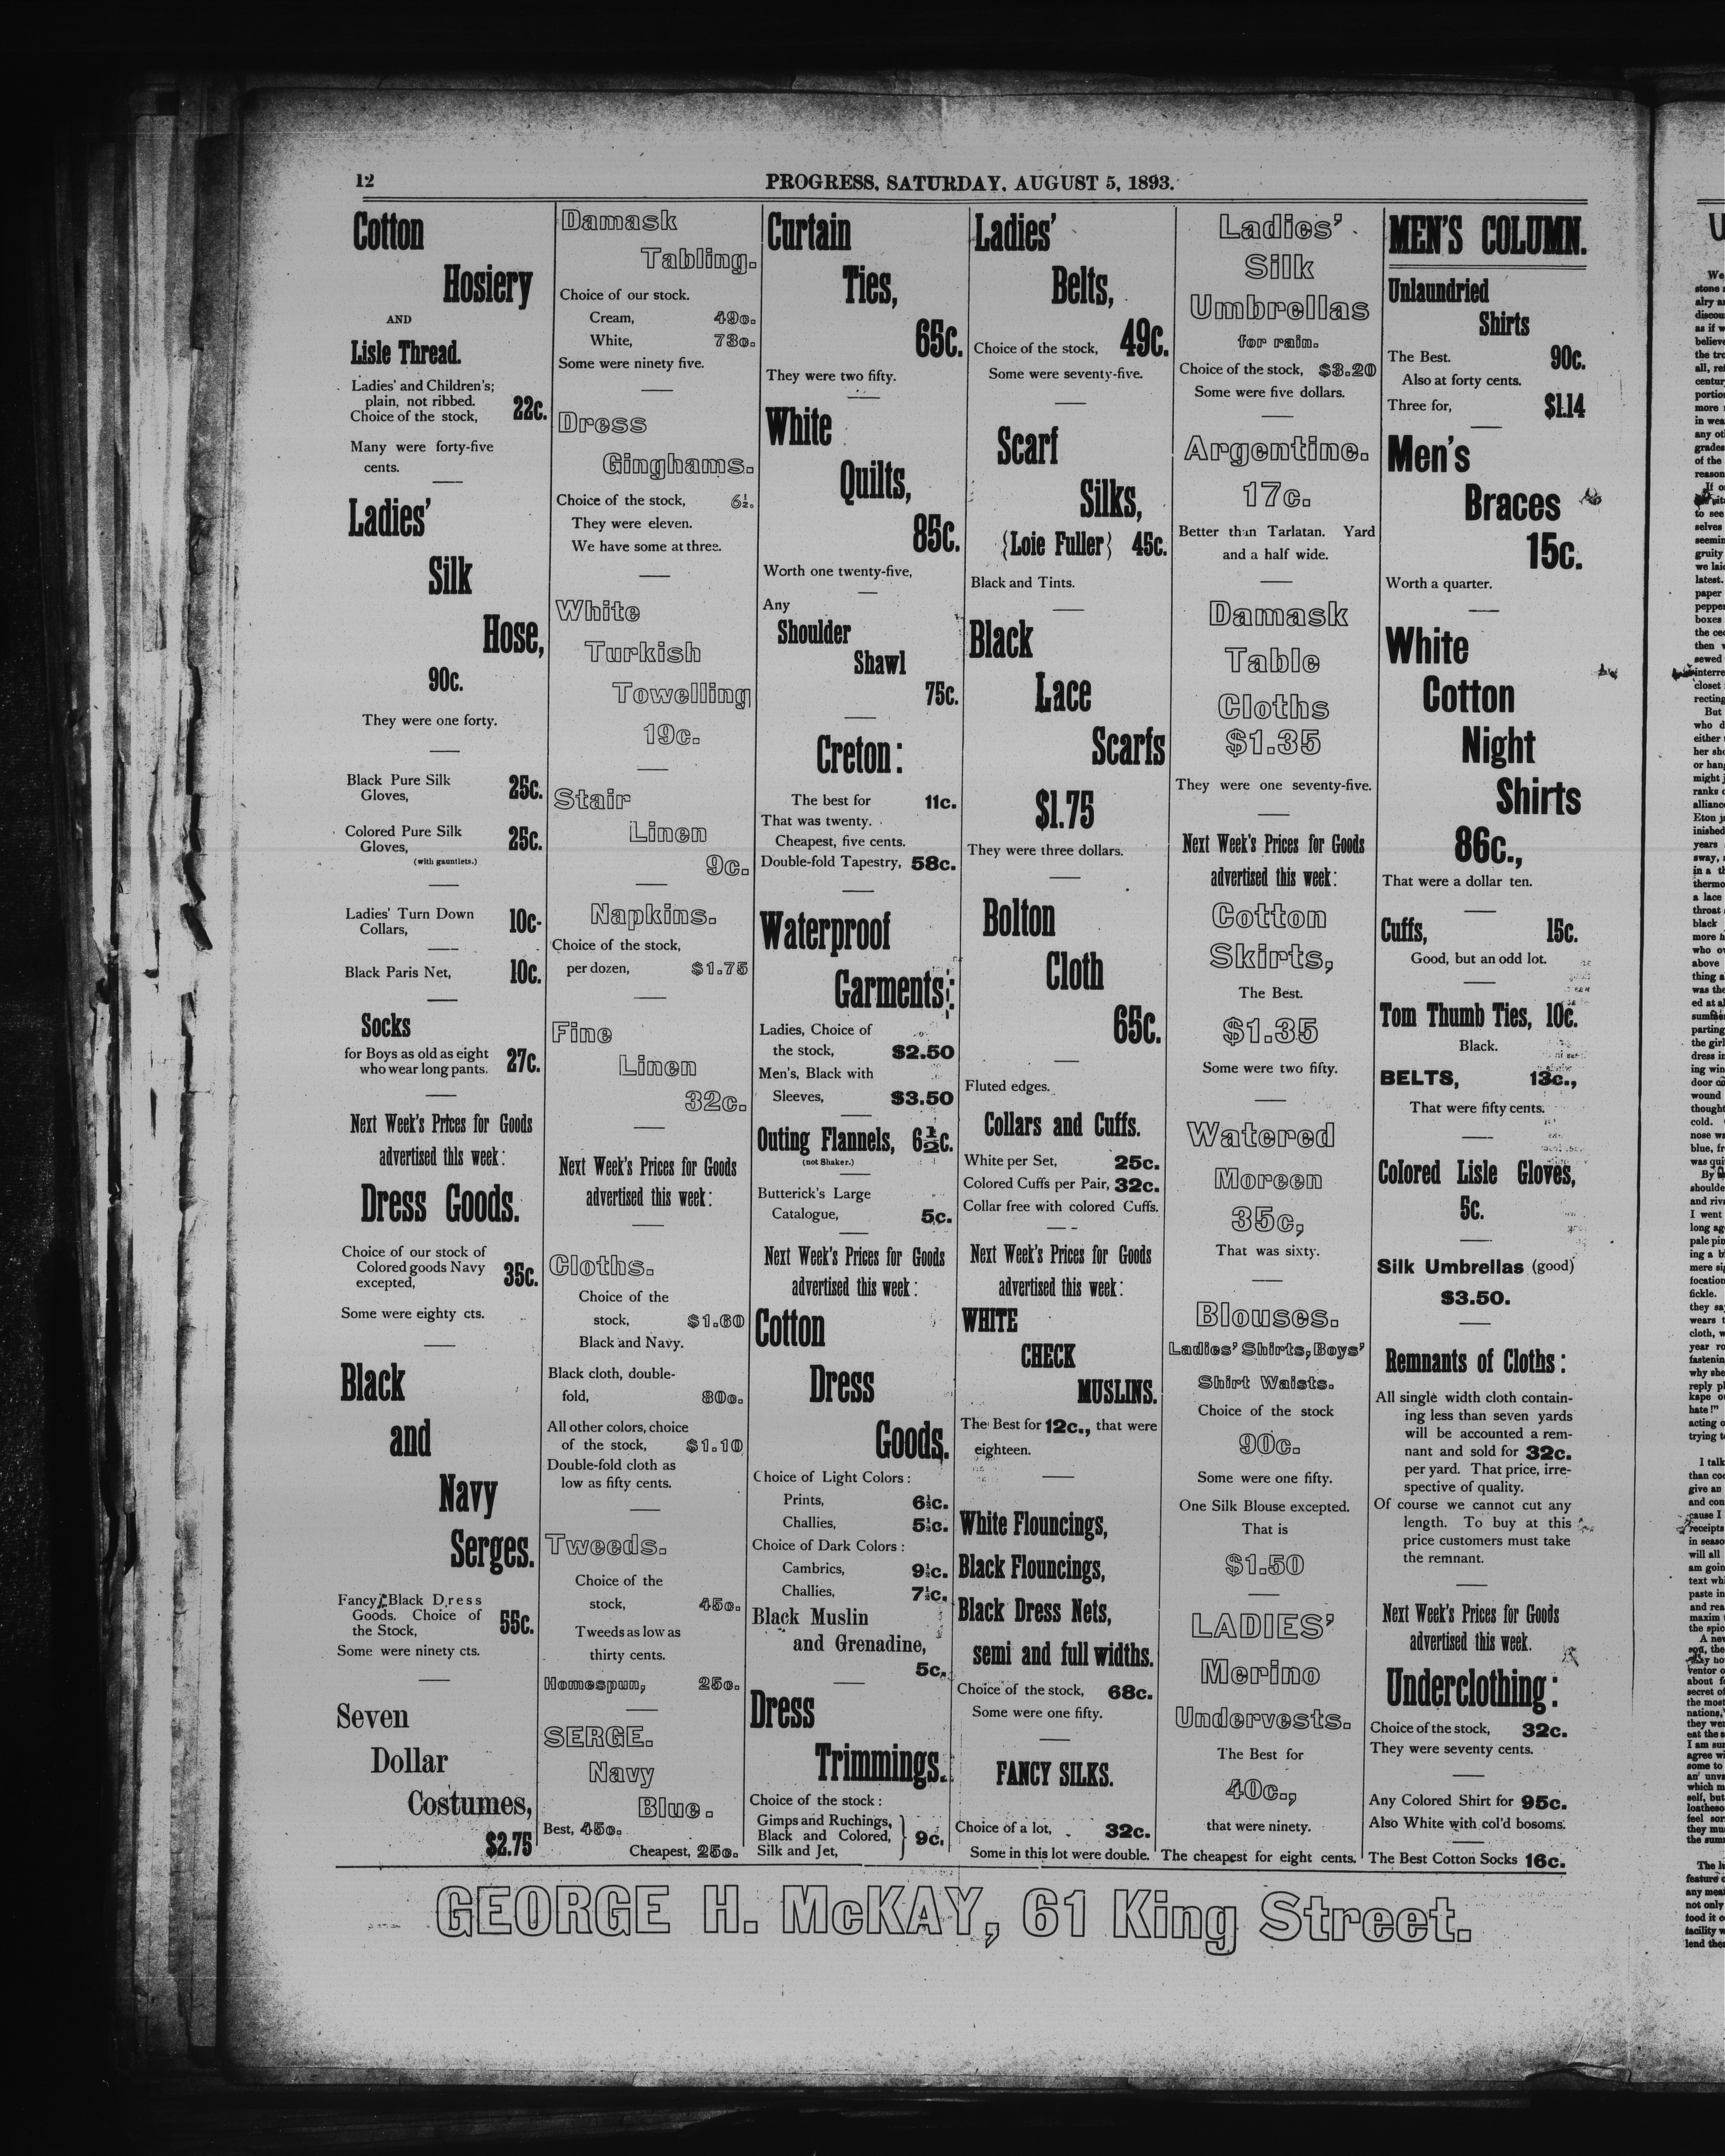 12
PROGRESS, SATURDAY, AUGUST 5, 1893.
Cotton
Hosiery
AND
Lisle Thread.
Ladies' and Children's;
plain, not ribbed.
Choice of the stock, 22c.
Many were forty-five
cents.
Ladies'
Silk
Hose,
90c.
They were one forty.
Black Pure Silk
Gloves, 25c.
Colored Pure Silk
Gloves, 25c.
(with gauntlets.)
Ladies' Turn Down
Collars, 10c.
Black Paris Net, 10c.
Socks
for Boys as old as eight
who wear long pants. 27c.
Next Week's Prices for Goods
advertised this week:
Dress Goods.
Choice of our stock of
Colored goods Navy
excepted, 35c.
Some were eighty cts.
Black
and
Navy
Serges.
Fancy Black Dress
Goods. Choice of
the Stock, 55c.
Some were ninety cts.
Seven
Dollar
Costumes,
$2.75
Damask
Tabling.
Choice of our stock.
Cream, 49c.
White, 73c.
Some were ninety five.
Dress
Ginghams.
Choice of the stock, 6½.
They were eleven.
We have some at three.
White
Turkish
Towelling
19c.
Stair
Linen
9c.
Napkins.
Choice of the stock,
per dozen, $1.75
Fine
Linen
32c.
Next Week's Prices for Goods
advertised this week:
Cloths.
Choice of the
stock, $1.60
Black and Navy.
Black cloth, double-
fold, 80c.
All other colors, choice
of the stock, $1.10
Double-fold cloth as
low as fifty cents.
Tweeds.
Choice of the
stock, 45c.
Tweeds as low as
thirty cents.
Homespun, 25c.
SERGE.
Navy
Blue.
Best, 45c.
Cheapest, 25c.
Curtain
Ties,
65c.
They were two fifty.
White
Quilts,
85c.
Worth one twenty-five,
Any
Shoulder
Shawl
75c.
Creton:
The best for 11c.
That was twenty.
Cheapest, five cents.
Double-fold Tapestry, 58c.
Waterproof
Garments:
Ladies, Choice of
the stock, $2.50
Men's, Black with
Sleeves, $3.50
Outing Flannels, 6½c.
(not Shaker.)
Butterick's Large
Catalogue, 5c.
Next Week's Prices for Goods
advertised this week:
Cotton
Dress
Goods.
Choice of Light Colors:
Prints, 6½c.
Challies, 5½c.
Choice of Dark Colors:
Cambrics, 9½c.
Challies, 7½c.
Black Muslin
and Grenadine,
5c.
Dress
Trimmings.
Choice of the stock:
Gimps and Ruchings,
Black and Colored, } 9c.
Silk and Jet,
Ladies'
Belts,
Choice of the stock, 49c.
Some were seventy-five.
Scarf
Silks,
{Loie Fuller} 45c.
Black and Tints.
Black
Lace
Scarfs
$1.75
They were three dollars.
Bolton
Cloth
65c.
Fluted edges.
Collars and Cuffs.
White per Set, 25c.
Colored Cuffs per Pair, 32c.
Collar free with colored Cuffs.
Next Week's Prices for Goods
advertised this week:
WHITE
CHECK
MUSLINS.
The Best for 12c., that were
eighteen.
White Flouncings,
Black Flouncings,
Black Dress Nets,
semi and full widths.
Choice of the stock, 68c.
Some were one fifty.
FANCY SILKS.
Choice of a lot, 32c.
Some in this lot were double.
Ladies'
Silk
Umbrellas
for rain.
Choice of the stock, $3.20
Some were five dollars.
Argentine.
17c.
Better than Tarlatan. Yard
and a half wide.
Damask
Table
Cloths
$1.35
They were one seventy-five.
Next Week's Prices for Goods
advertised this week:
Cotton
Skirts,
The Best.
$1.35
Some were two fifty.
Watered
Moreen
35c,
That was sixty.
Blouses.
Ladies' Shirts, Boys'
Shirt Waists.
Choice of the stock
90c.
Some were one fifty.
One Silk Blouse excepted.
That is
$1.50
LADIES'
Merino
Undervests.
The Best for
40c.,
that were ninety.
The cheapest for eight cents.
MEN'S COLUMN.
Unlaundried
Shirts
The Best. 90c.
Also at forty cents.
Three for, $1.14
Men's
Braces
15c.
Worth a quarter.
White
Cotton
Night
Shirts
86c.,
That were a dollar ten.
Cuffs, 15c.
Good, but an odd lot.
Tom Thumb Ties, 10c.
Black.
BELTS, 13c.,
That were fifty cents.
Colored Lisle Gloves,
5c.
Silk Umbrellas (good)
$3.50.
Remnants of Cloths:
All single width cloth contain-
ing less than seven yards
will be accounted a rem-
nant and sold for 32c.
per yard. That price, irre-
spective of quality.
Of course we cannot cut any
length. To buy at this
price customers must take
the remnant.
Next Week's Prices for Goods
advertised this week.
Underclothing:
Choice of the stock, 32c.
They were seventy cents.
Any Colored Shirt for 95c.
Also White with col'd bosoms.
The Best Cotton Socks 16c.
GEORGE H. McKAY, 61 King Street.